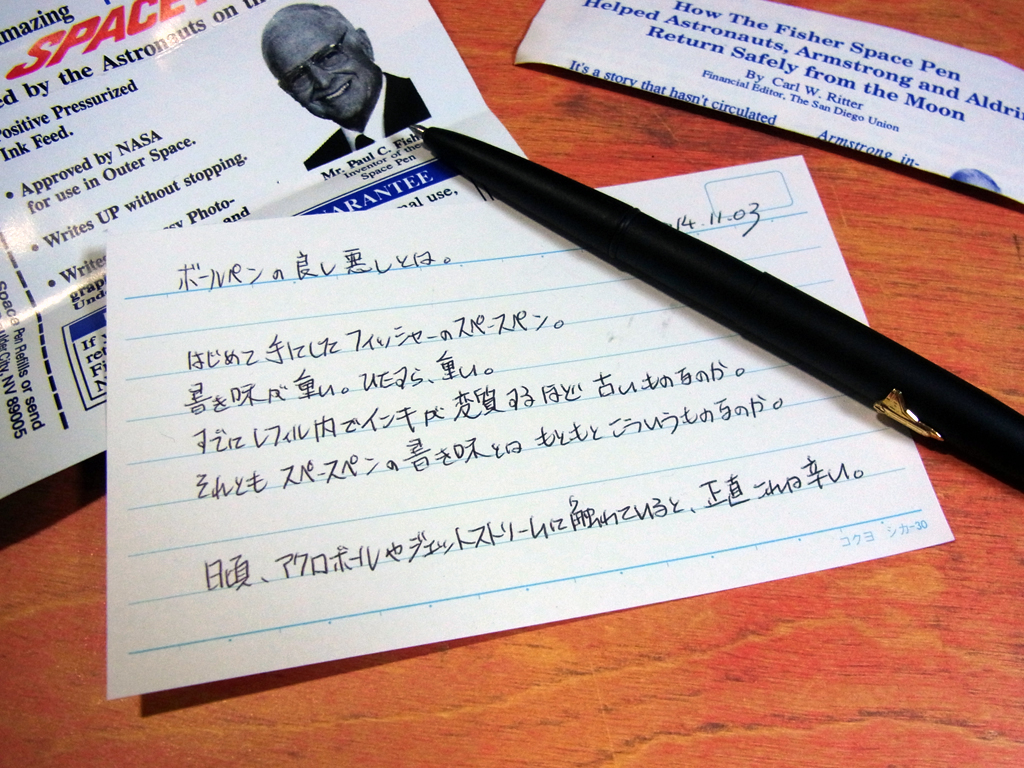 mazing
SPACE
ed by the Astronauts on th
ositive Pressurized
Ink Feed.
• Approved by NASA
for use in Outer Space.
• Writes UP without stopping.
Photo-
and
• Writes
Mr. Paul C. Fish
inventor of the
Space Pen
ARANTEE
use,
If
Space Pen Refills or send
City, NV 89005
How The Fisher Space Pen
Helped Astronauts, Armstrong and Aldrin
Return Safely from the Moon
By Carl W. Ritter
Financial Editor, The San Diego Union
It's a story that hasn't circulated
Armstrong in-
14.11.03
ボールペンの良し悪しとは。
はじめて手にしたフィッシャーのスペースペン。
書き味が重い。ひたすら、重い。
すでにレフィル内でインキが変質するほど古いものなのか。
それともスペースペンの書き味とはもともとこういうものなのか。
日頃、アクロボールやジェットストリームに触れていると、正直これは辛い。
コクヨ シカ-30